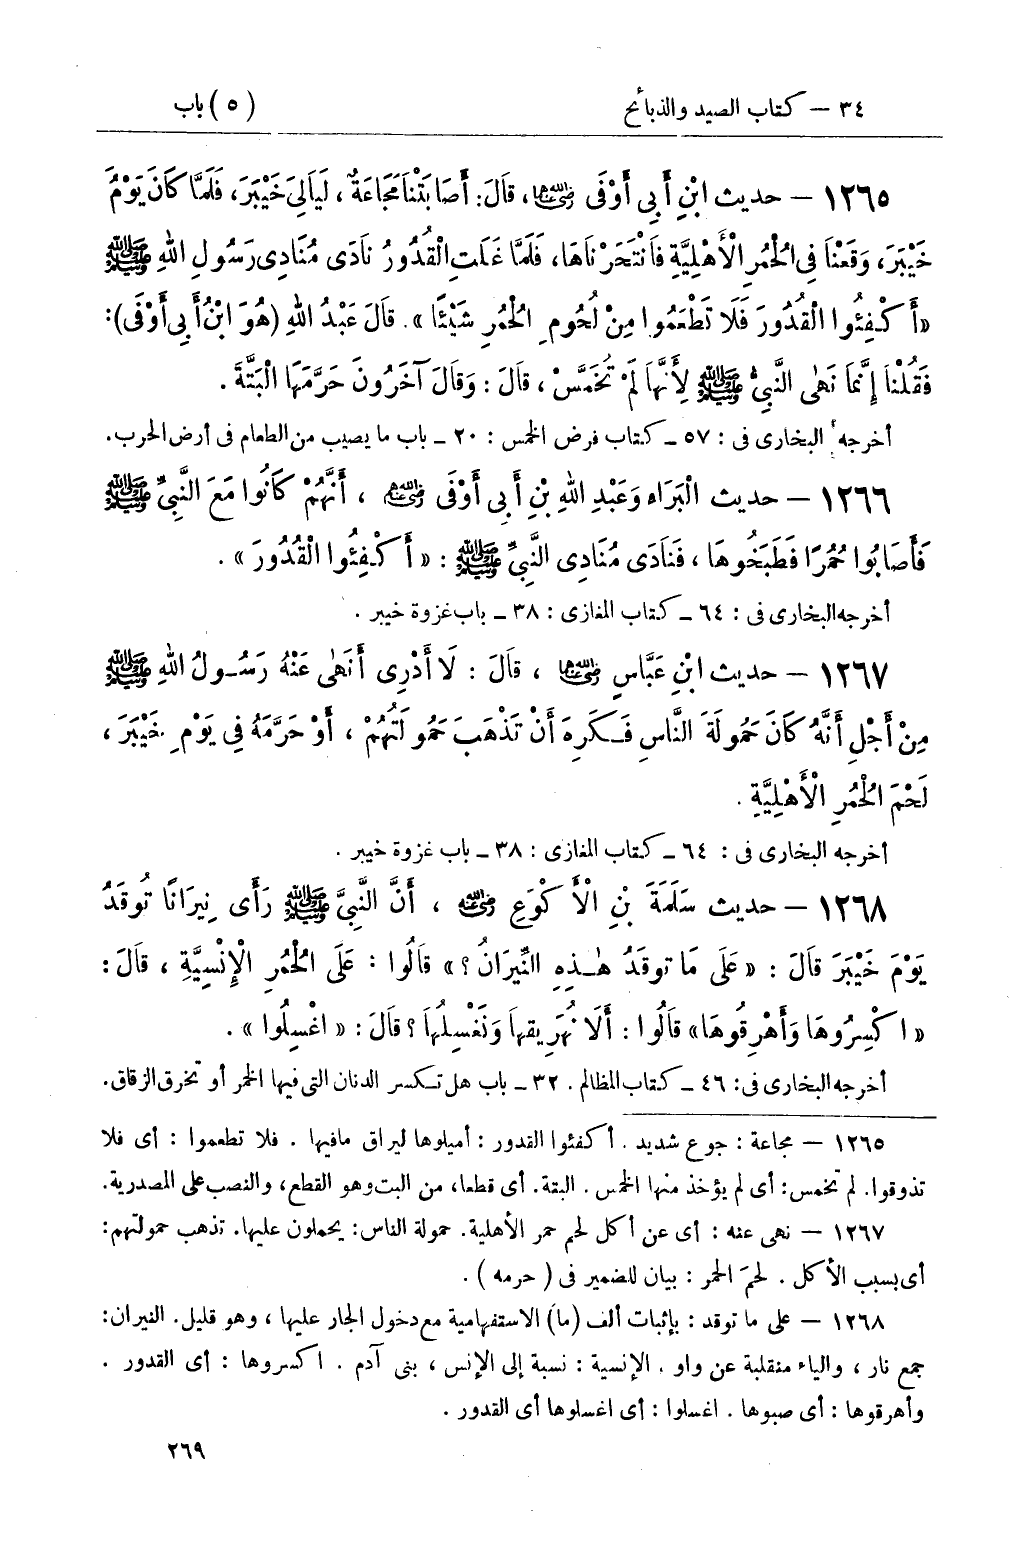 ٣٤ – كتاب الصيد والذبائح
(٥) باب
١٢٦٥ – حديث ابْنِ أَبِي أَوْفَى رضي الله عنهما، قَالَ: أَصَابَتْنَا مَجَاعَةٌ، لَيَالِيَ خَيْبَرَ، فَلَمَّا كَانَ يَوْمُ
خَيْبَرَ، وَقَعْنَا فِي الْحُمُرِ الْأَهْلِيَّةِ فَانْتَحَرْنَاهَا، فَلَمَّا غَلَتِ الْقُدُورُ نَادَى مُنَادِى رَسُولِ اللهِ ﷺ
«أَكْفِئُوا الْقُدُورَ فَلَا تَطْعَمُوا مِنْ لُحُومِ الْحُمُرِ شَيْئًا». قَالَ عَبْدُ اللهِ (هُوَ ابْنُ أَبِي أَوْفَى):
فَقُلْنَا إِنَّمَا نَهَى النَّبِيُّ ﷺ لِأَنَّهَا لَمْ تُخَمَّسْ، قَالَ: وَقَالَ آخَرُونَ حَرَّمَهَا الْبَتَّةَ.
أخرجه البخارى فى: ٥٧ – كتاب فرض الخمس: ٢٠ – باب ما يصيب من الطعام فى أرض الحرب.
١٢٦٦ – حديث الْبَرَاءِ وَعَبْدِ اللهِ بْنِ أَبِي أَوْفَى رضي الله عنهم، أَنَّهُمْ كَانُوا مَعَ النَّبِيِّ ﷺ
فَأَصَابُوا حُمُرًا فَطَبَخُوهَا، فَنَادَى مُنَادِى النَّبِيِّ ﷺ: «أَكْفِئُوا الْقُدُورَ».
أخرجه البخارى فى: ٦٤ – كتاب المغازى: ٣٨ – باب غزوة خيبر.
١٢٦٧ – حديث ابْنِ عَبَّاسٍ رضي الله عنهما، قَالَ: لَا أَدْرِى أَنَهَى عَنْهُ رَسُولُ اللهِ ﷺ
مِنْ أَجْلِ أَنَّهُ كَانَ حَمُولَةَ النَّاسِ فَكَرِهَ أَنْ تَذْهَبَ حَمُولَتُهُمْ، أَوْ حَرَّمَهُ فِي يَوْمِ خَيْبَرَ،
لَحْمَ الْحُمُرِ الْأَهْلِيَّةِ.
أخرجه البخارى فى: ٦٤ – كتاب المغازى: ٣٨ – باب غزوة خيبر.
١٢٦٨ – حديث سَلَمَةَ بْنِ الْأَكْوَعِ رضي الله عنه، أَنَّ النَّبِيَّ ﷺ رَأَى نِيرَانًا تُوقَدُ
يَوْمَ خَيْبَرَ قَالَ: «عَلَى مَا تُوقَدُ هٰذِهِ النِّيرَانُ؟» قَالُوا: عَلَى الْحُمُرِ الْإِنْسِيَّةِ، قَالَ:
«اكْسِرُوهَا وَأَهْرِقُوهَا» قَالُوا: أَلَا نُهَرِيقُهَا وَنَغْسِلُهَا؟ قَالَ: «اغْسِلُوا».
أخرجه البخارى فى: ٤٦ – كتاب المظالم. ٣٢ – باب هل تكسر الدنان التى فيها الخمر أو تخرق الزقاق.
١٢٦٥ – مجاعة: جوع شديد. أكفئوا القدور: أميلوها ليراق مافيها. فلا تطعموا: أى فلا
تذوقوا. لم تخمس: أى لم يؤخذ منها الخمس. البتة. أى قطعا، من البت وهو القطع، والنصب على المصدرية.
١٢٦٧ – نهى عنه: أى عن أكل لحم حمر الأهلية. حمولة الناس: يحملون عليها. تذهب حمولتهم:
أى بسبب الأكل. لحمَ الحمر: بيان للضمير فى (حرمه).
١٢٦٨ – على ما توقد: بإثبات ألف (ما) الاستفهامية مع دخول الجار عليها، وهو قليل. النيران:
جمع نار، والياء منقلبة عن واو. الإنسية: نسبة إلى الإنس، بنى آدم. اكسروها: أى القدور.
وأهرقوها: أى صبوها. اغسلوا: أى اغسلوها أى القدور.
٢٦٩